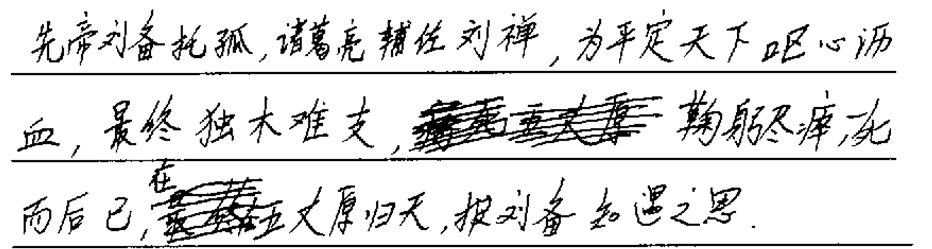 先帝刘备托孤,诸葛亮辅佐刘禅,为平定天下呕心沥
血,最终独木难支,鞠躬尽瘁,死
而后已,在五丈原归天,报刘备知遇之恩.